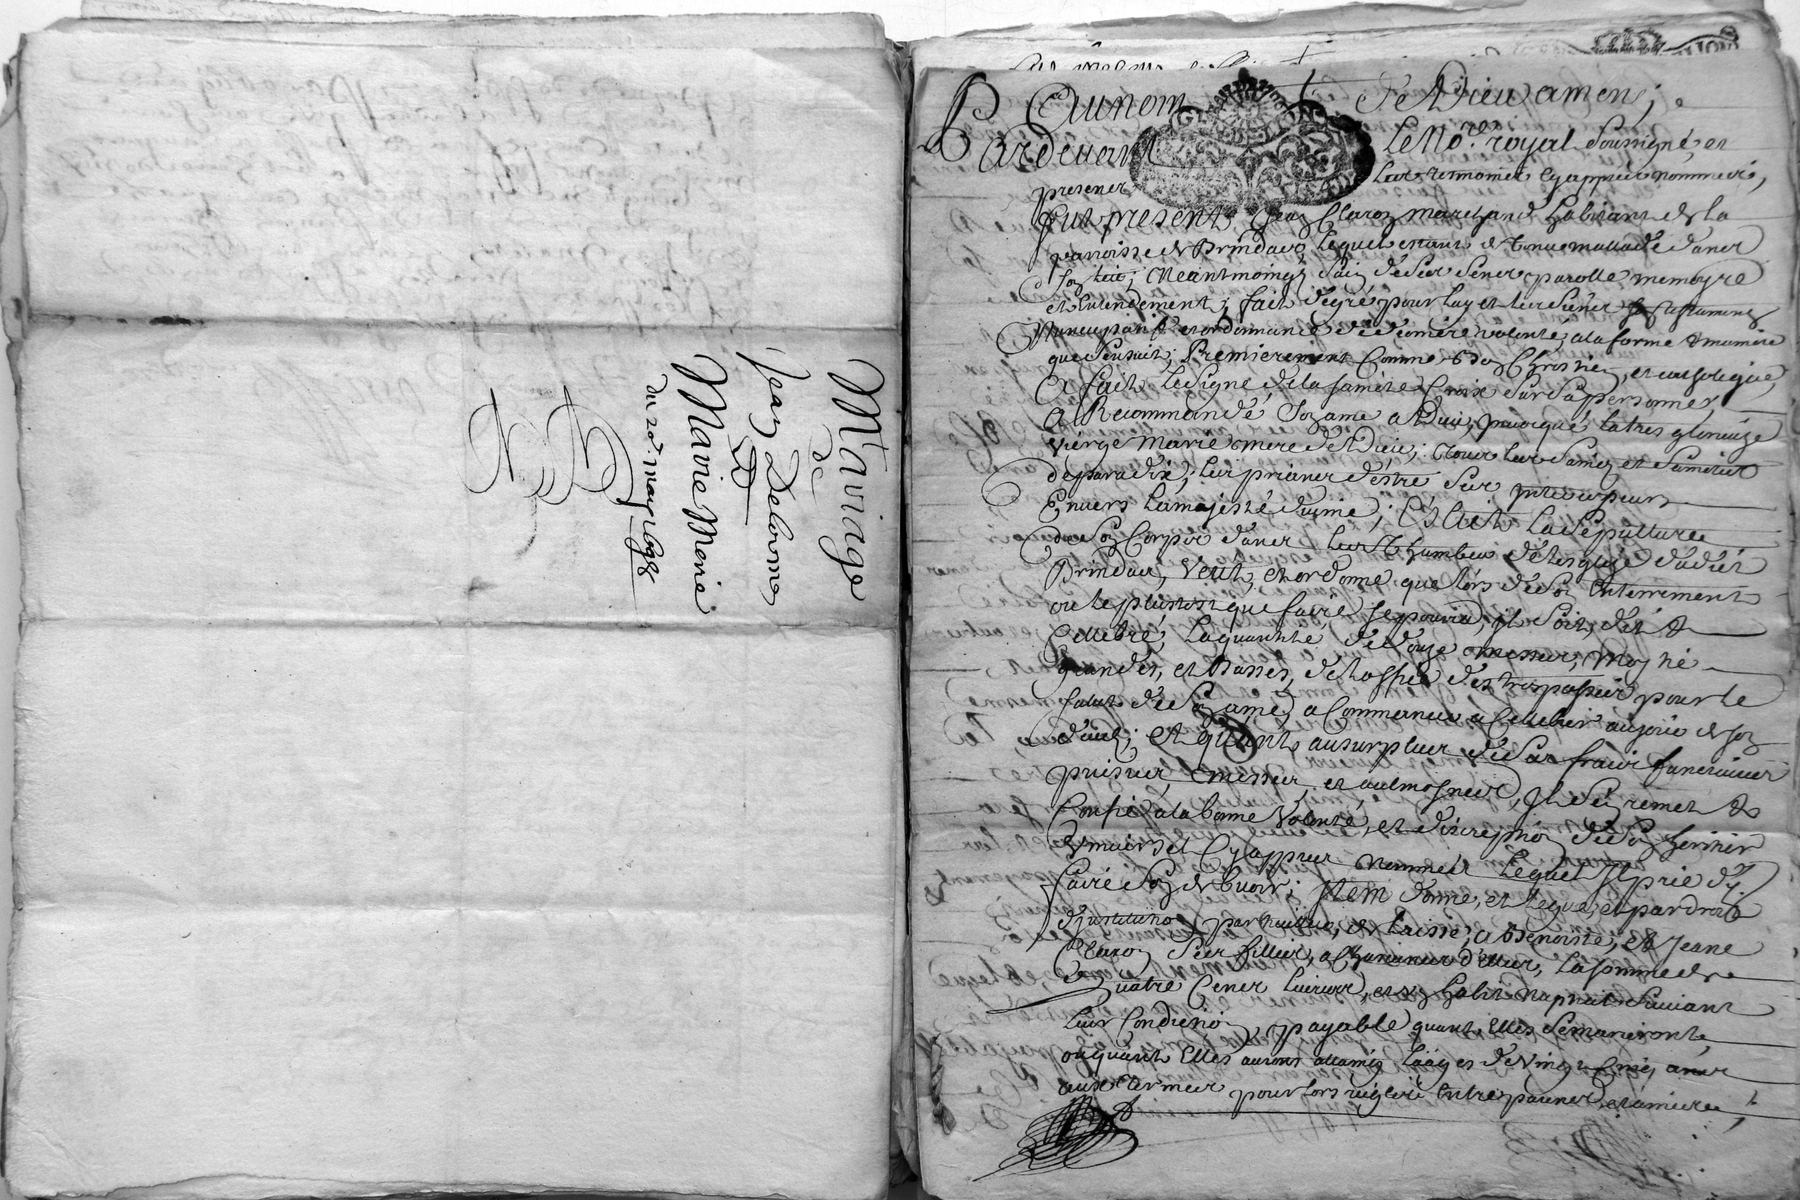 Mariage
de
Jean Delorme
&
Marie Morie
du 20e. may 1698
Au nom de Dieu amen ;
Pardevant le No.re royal soussigné et
presence les tesmoins cy appres nommes,
fut present Jean Claron marchand habitant de la
parroisse de Brindas, lequel estant detenu mallade dans
son lict ; neantmoings sain de ses sens parolle memoyre
et entendement ; fait de gré pour luy et les siens son testament
nuncupatif et ordonnance de derniere volonté, a la forme & maniere
que s'ensuit ; Premierement Comme bon Chrestien, et catholique,
a fait le signe de la saincte Croix sur sa personne,
a Recommandé son ame a Dieu, invoqué la tres glorieuse
vierge Marie mere de Dieu ; tous les saincts et sainctes
de paradix ; les priants d'estre ses intercesseurs
Envers la majesté divine ; Eslict la sepulture
de son Corps dans les thumbes de l'esglize dudict
Brindas, Veut, et ordonne que lors de son Enterrement
ou le plustost que faire se pourra, il soit dit &
Cellebré, la quantité de douze messes, moytié
grandes, et basses, de l'office des trespasses pour le
salut de son ame, a Commencer a Cellebrer au jour de son
deces ; et quant au surplus de ses frais funeraires
prieres, messes, et aulmosnes, Il s'en remet &
Confie a la bonne Volonté, et discreption de son heritier
Universel Cy appres nommé lequel Il prie d'y
faire son debvoir ; Item donne, et legue, et par droit
d'institution particuliere, delaisse, a Benoiste, et Jeane
Claron ses filles, a Chascunes d'elles, la somme de
quatre Cents livres, et un habit nuptial suivant
leur Condition, payable quant elles se marieront
ou quant Elles auront attaint l'aages de vingt cinq ans
aux termes pour lors reglés Entre parents, et amis ;